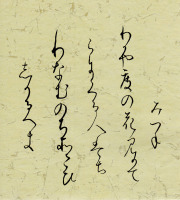 みつね
わかや度の花見かて
らにくる人はち
りなむのちそこひ
しかるへき